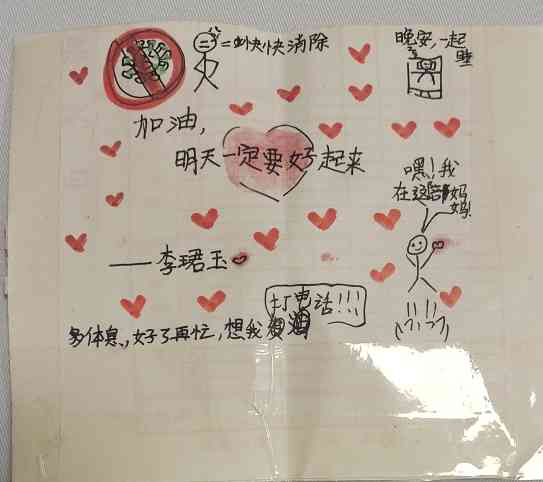 =快快消除
晚安,一起
睡
加油,
明天一定要好起来
嘿!我
在这陪妈
妈!
——李珺玉
打电话!!!
多体息,好了再忙,想我